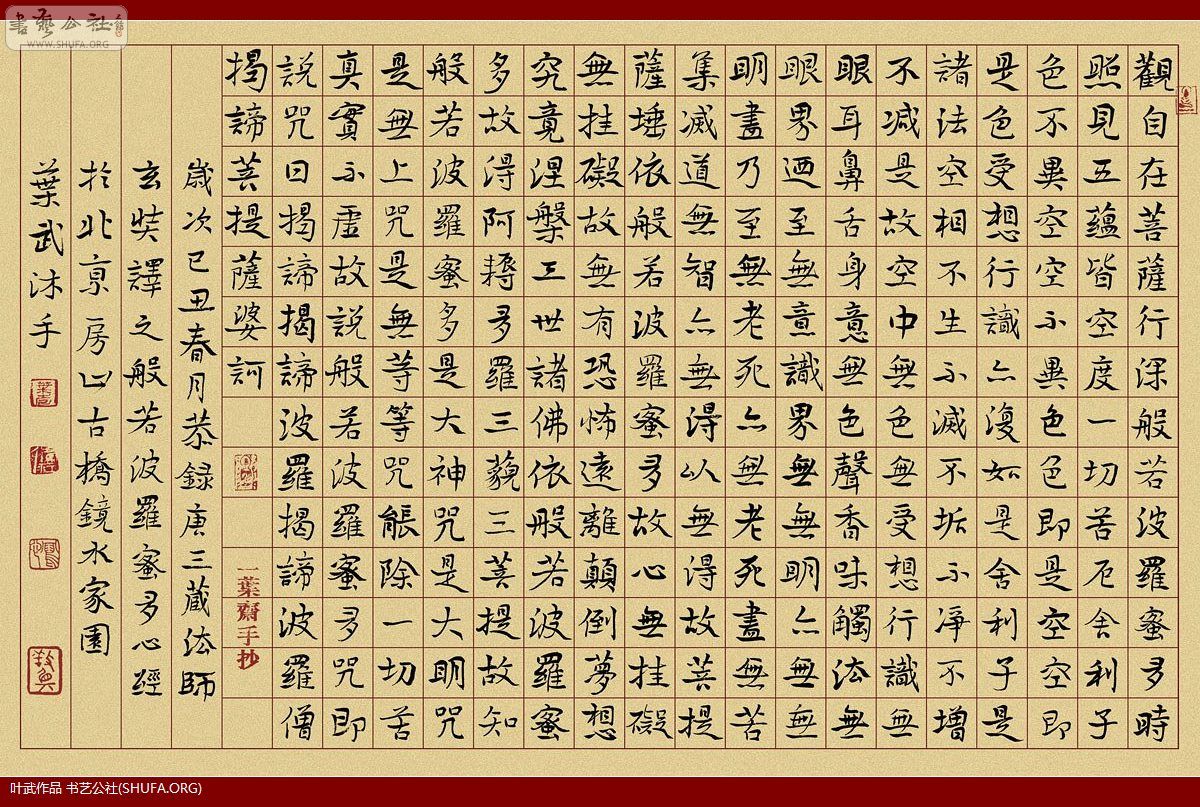 觀自在菩薩行深般若波羅蜜多時
照見五蘊皆空度一切苦厄舍利子
色不異空空不異色色即是空空即
是色受想行識亦復如是舍利子是
諸法空相不生不滅不垢不淨不增
不減是故空中無色無受想行識無
眼耳鼻舌身意無色聲香味觸法無
眼界迺至無意識界無無明亦無無
明盡乃至無老死亦無老死盡無苦
集滅道無智亦無得以無得故菩提
薩埵依般若波羅蜜多故心無挂礙
無挂礙故無有恐怖遠離顛倒夢想
究竟涅槃三世諸佛依般若波羅蜜
多故得阿耨多羅三藐三菩提故知
般若波羅蜜多是大神咒是大明咒
是無上咒是無等等咒能除一切苦
真實不虛故說般若波羅蜜多咒即
說咒曰揭諦揭諦波羅揭諦波羅僧
揭諦菩提薩婆訶
一葉齋手抄
歲次己丑春月恭録唐三藏法師
玄奘譯之般若波羅蜜多心經
於北京房山古橋鏡水家園
葉武沐手
书艺公社
WWW.SHUFA.ORG
叶武作品 书艺公社(SHUFA.ORG)